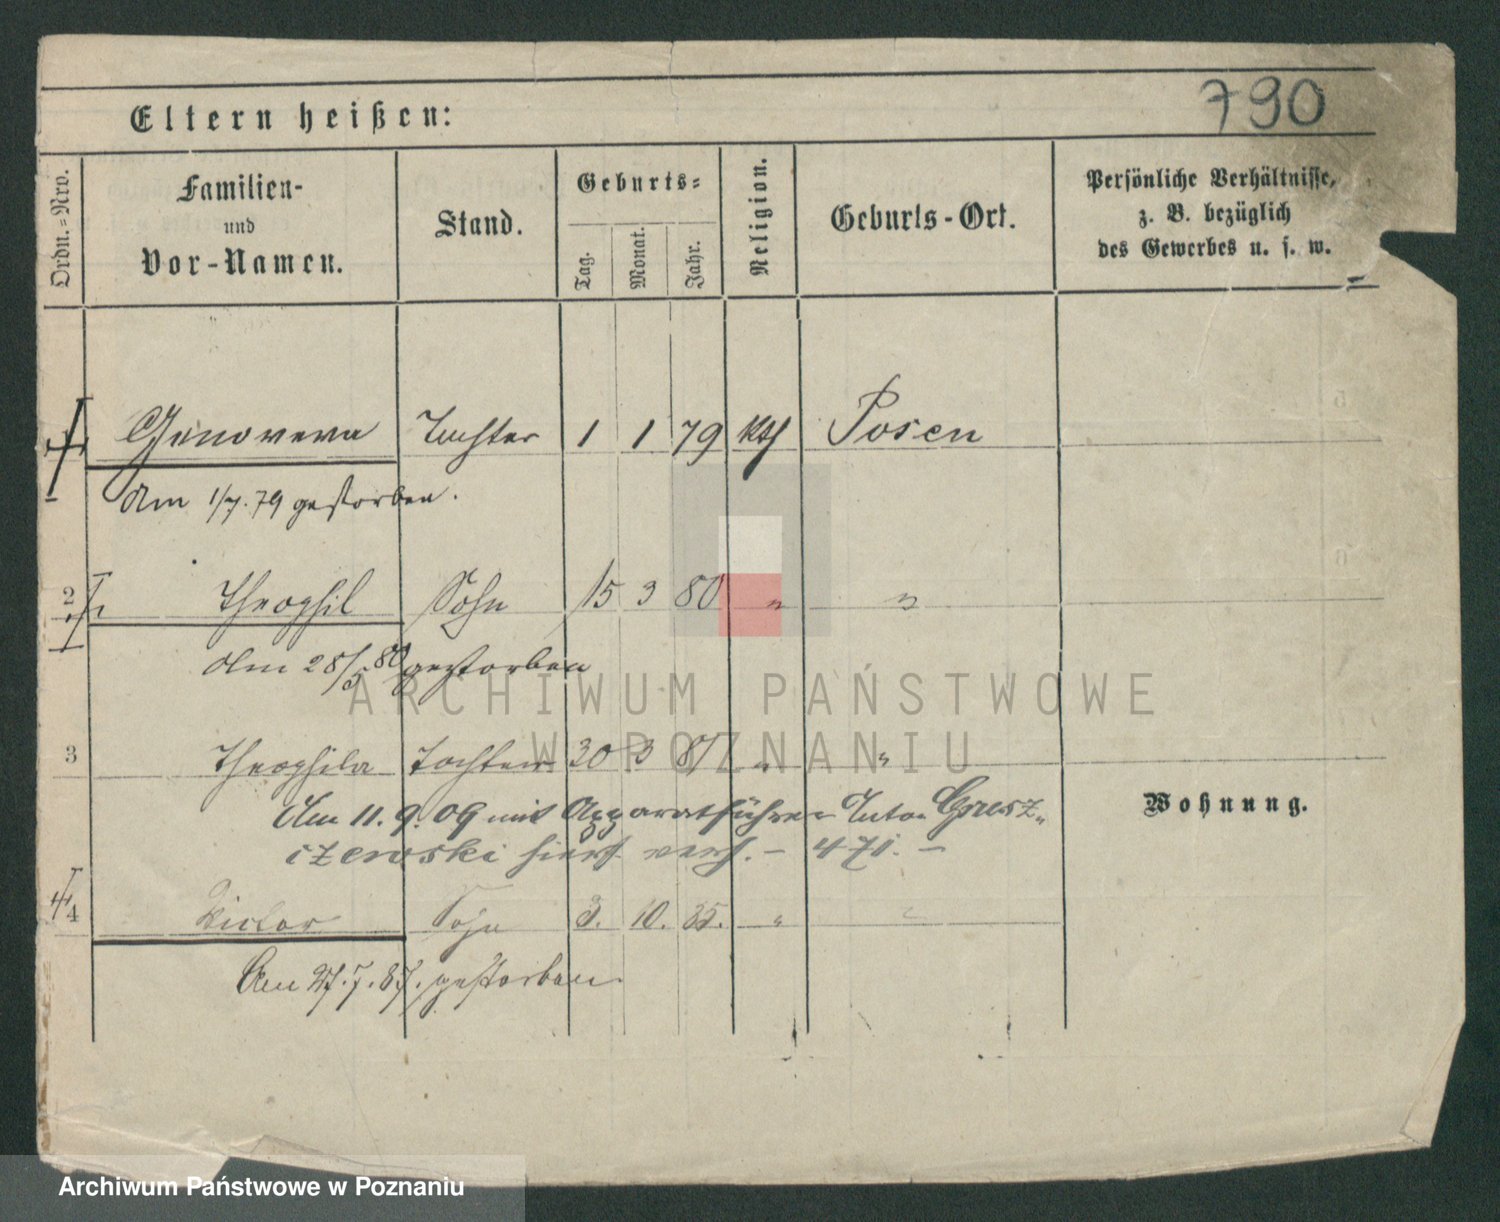 790
Eltern heißen:
Ordn.=Nro.
Familien-
und
Vor-Namen.
Stand.
Geburts=
Tag.
Monat.
Jahr.
Religion.
Geburts-Ort.
Persönliche Verhältnisse,
z. B. bezüglich
des Gewerbes u. s. w.
1 Genoveva Tochter 1 1 79 kth Posen
Am 1/7. 79 gestorben.
2 Theophil Sohn 15 3 80 " "
Am 28/5 80 gestorben
3 Theophila Tochter 30 3 81 " "
Wohnung.
Am 11. 9. 09 mit Apparatführer Anton Grusz„
czewski hier verh. – 471. –
4 Victor Sohn 3. 10. 85. " "
Am 27. 7. 87. gestorben.
ARCHIWUM PAŃSTWOWE
W POZNANIU
Archiwum Państwowe w Poznaniu